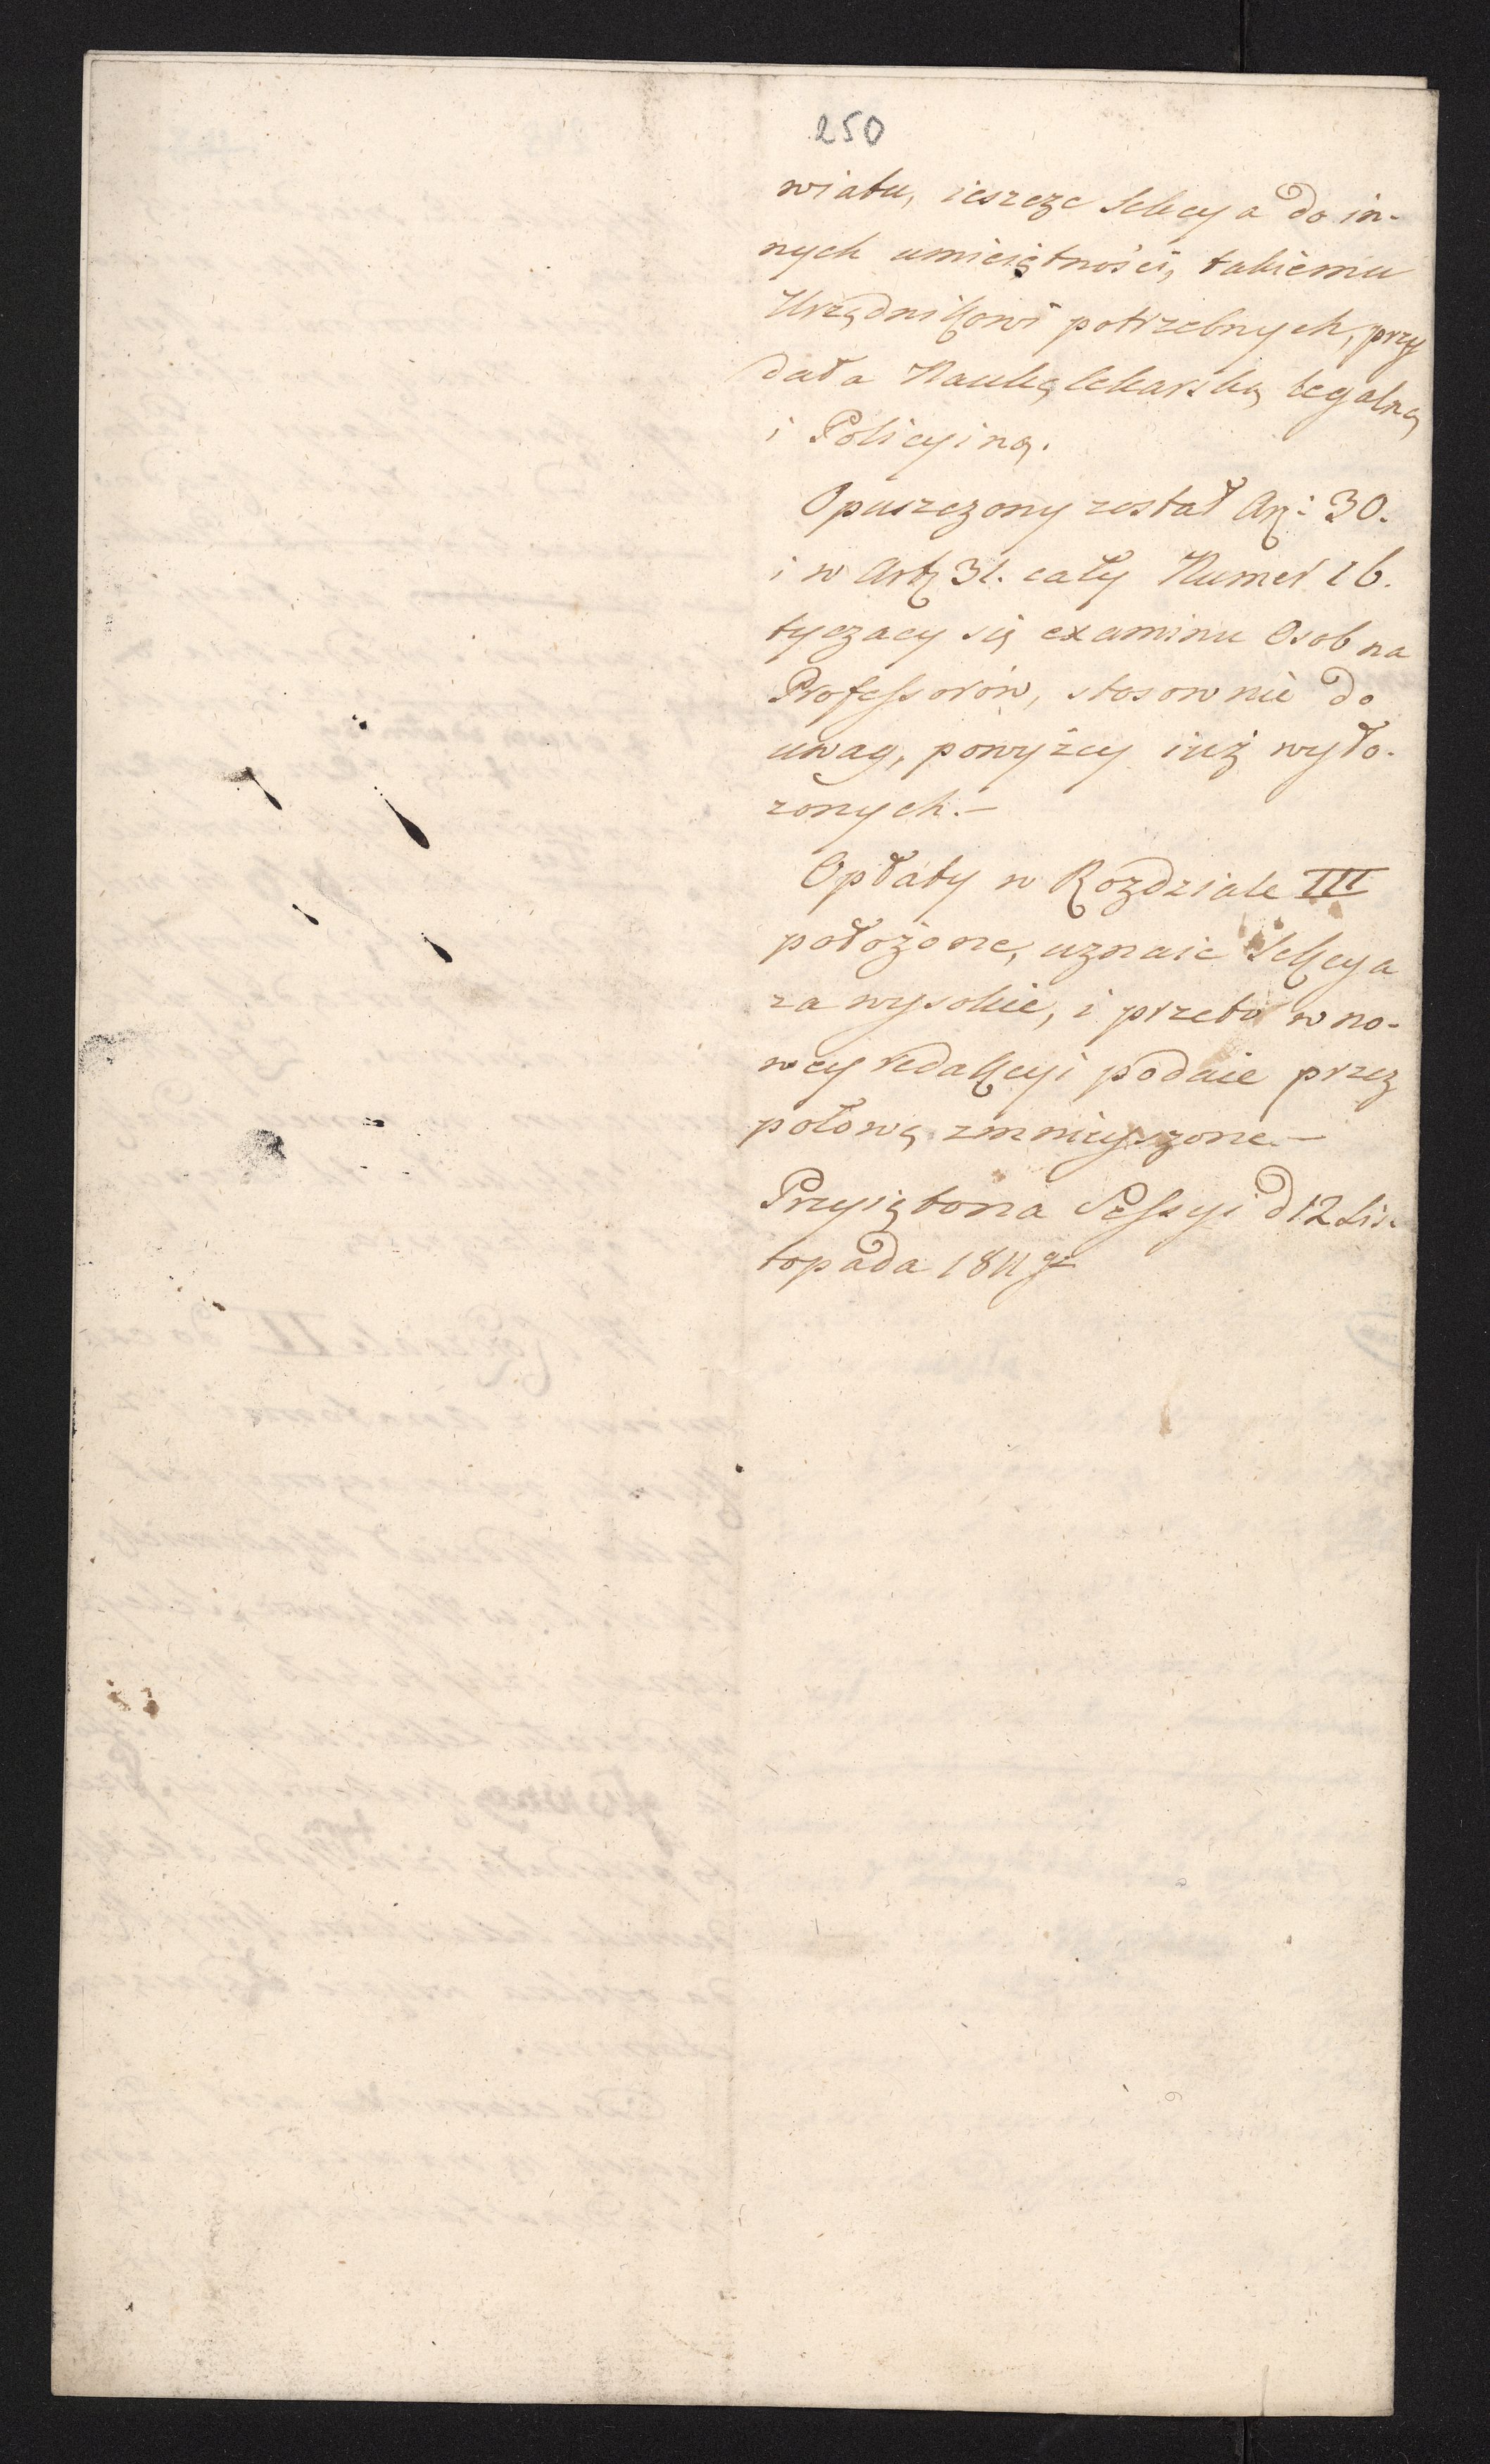 250
wiatu, ieszcze Sekcya do in-
nych umieiętności, takiemu
Urzędnikowi potrzebnych, przy
dała Naukę lekarską legalną
i Policyiną.
Opuszczony został Art: 30.
i w Art 31. cały Numer 16.
tyczący się examinu Osob na
Professorów, stosownie do
uwag, powyżey iuż wyło-
żonych.—
Opłaty w Rozdziale III
położone, uznaie Sekcya
za wysokie, i przeto w no-
wey redakcyi podaie przez
połowę zmnieyszone.—
Przyięto na Sessyi d 12 Lis-
topada 1811 r